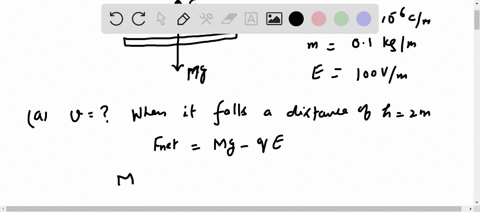 ⁻⁶ c/m
m = 0.1 kg/m
Mg
E = 100 V/m
(a) v = ? When it falls a distance of h = 2m
Fnet = Mg - qE
M